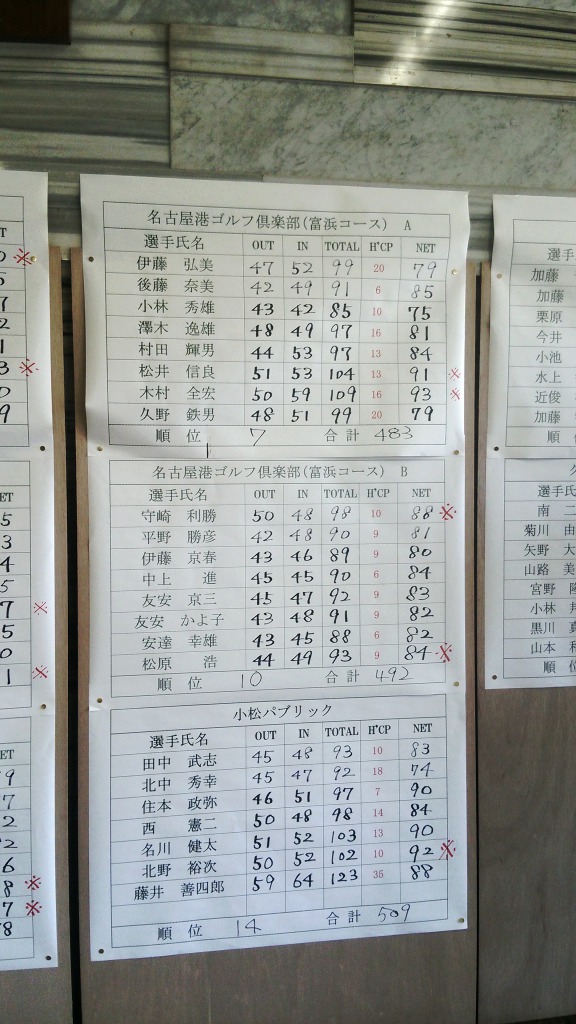 名古屋港ゴルフ倶楽部(富浜コース) A
選手氏名 OUT IN TOTAL H'CP NET
伊藤 弘美 47 52 99 20 79
後藤 奈美 42 49 91 6 85
小林 秀雄 43 42 85 10 75
澤木 逸雄 48 49 97 16 81
村田 輝男 44 53 97 13 84
松井 信良 51 53 104 13 91 ※
木村 全宏 50 59 109 16 93 ※
久野 鉄男 48 51 99 20 79
順 位 7 合 計 483
名古屋港ゴルフ倶楽部(富浜コース) B
選手氏名 OUT IN TOTAL H'CP NET
守崎 利勝 50 48 98 10 88 ※
平野 勝彦 42 48 90 9 81
伊藤 京春 43 46 89 9 80
中上 進 45 45 90 6 84
友安 京三 45 47 92 9 83
友安 かよ子 43 48 91 9 82
安達 幸雄 43 45 88 6 82
松原 浩 44 49 93 9 84 ※
順 位 10 合 計 492
小松パブリック
選手氏名 OUT IN TOTAL H'CP NET
田中 武志 45 48 93 10 83
北中 秀幸 45 47 92 18 74
住本 政弥 46 51 97 7 90
西 憲二 50 48 98 14 84
名川 健太 51 52 103 13 90
北野 裕次 50 52 102 10 92 ※
藤井 善四郎 59 64 123 36 88
順 位 14 合 計 509
選手
加藤
加藤
栗原
今井
小池
水上
近俊
加藤
順 位
選手氏
南 二
菊川 由
矢野 大
山路 美
宮野
小林
黒川
山本
順 位